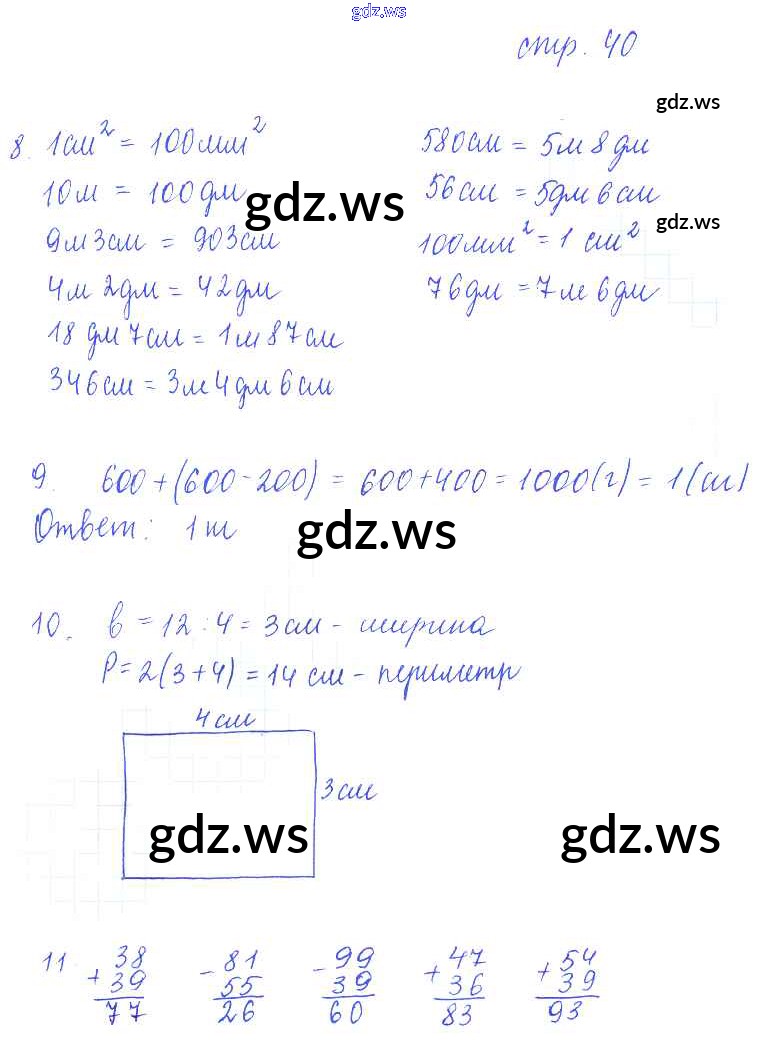 gdz.ws
стр. 40
gdz.ws
8. 1см² = 100мм²
10м = 100дм
9м3см = 903см
4м 2дм = 42дм
18 дм 7см = 1м 87см
346см = 3м 4дм 6см
580см = 5м 8дм
56см = 5дм 6см
100мм² = 1 см²
76дм = 7м 6дм
gdz.ws
gdz.ws
9. 600+(600-200) = 600+400 = 1000(г) = 1(т)
Ответ: 1т
gdz.ws
10. b = 12 : 4 = 3см - ширина
P = 2(3+4) = 14 см - периметр
4см
3см
gdz.ws
gdz.ws
11. 38 81 99 47 54
+39 -55 -39 +36 +39
77 26 60 83 93